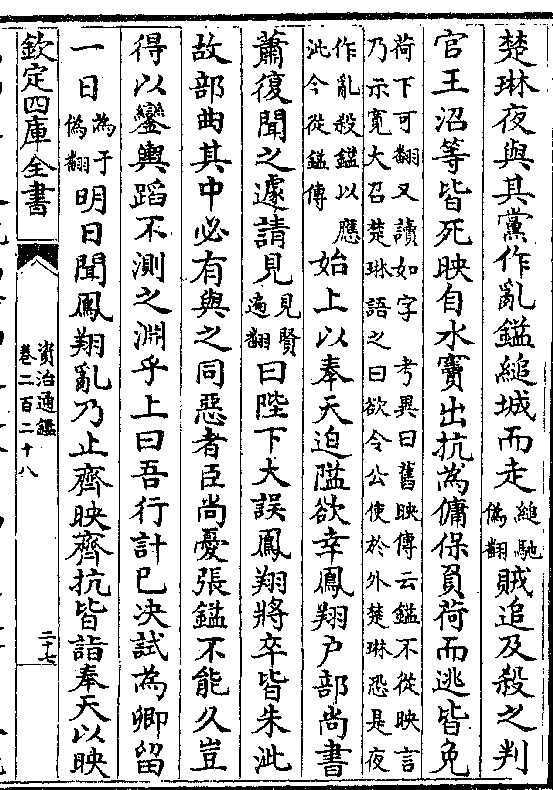 楚琳夜與其黨作亂鎰縋城而走縋馳偽翻賊追及殺之判
官王沼等皆死映自水竇出抗為傭保負荷而逃皆免
荷下可翻又讀如字　考異曰舊映傳云鎰不從映言
乃示寛大召楚琳語之曰欲令公使於外楚琳恐是夜
作亂殺鎰以應
泚今從鎰傳
始上以奉天迫隘欲幸鳳翔户部尚書
蕭復聞之遽請見見賢遍翻曰陛下大誤鳳翔將卒皆朱泚
故部曲其中必有與之同惡者臣尚憂張鎰不能久豈
得以鑾輿蹈不測之淵乎上曰吾行計已决試為卿留
一日為于偽翻明日聞鳳翔亂乃止齊映齊抗皆詣奉天以映
欽定四庫全書
資治通鑑
卷二百二十八
二十七